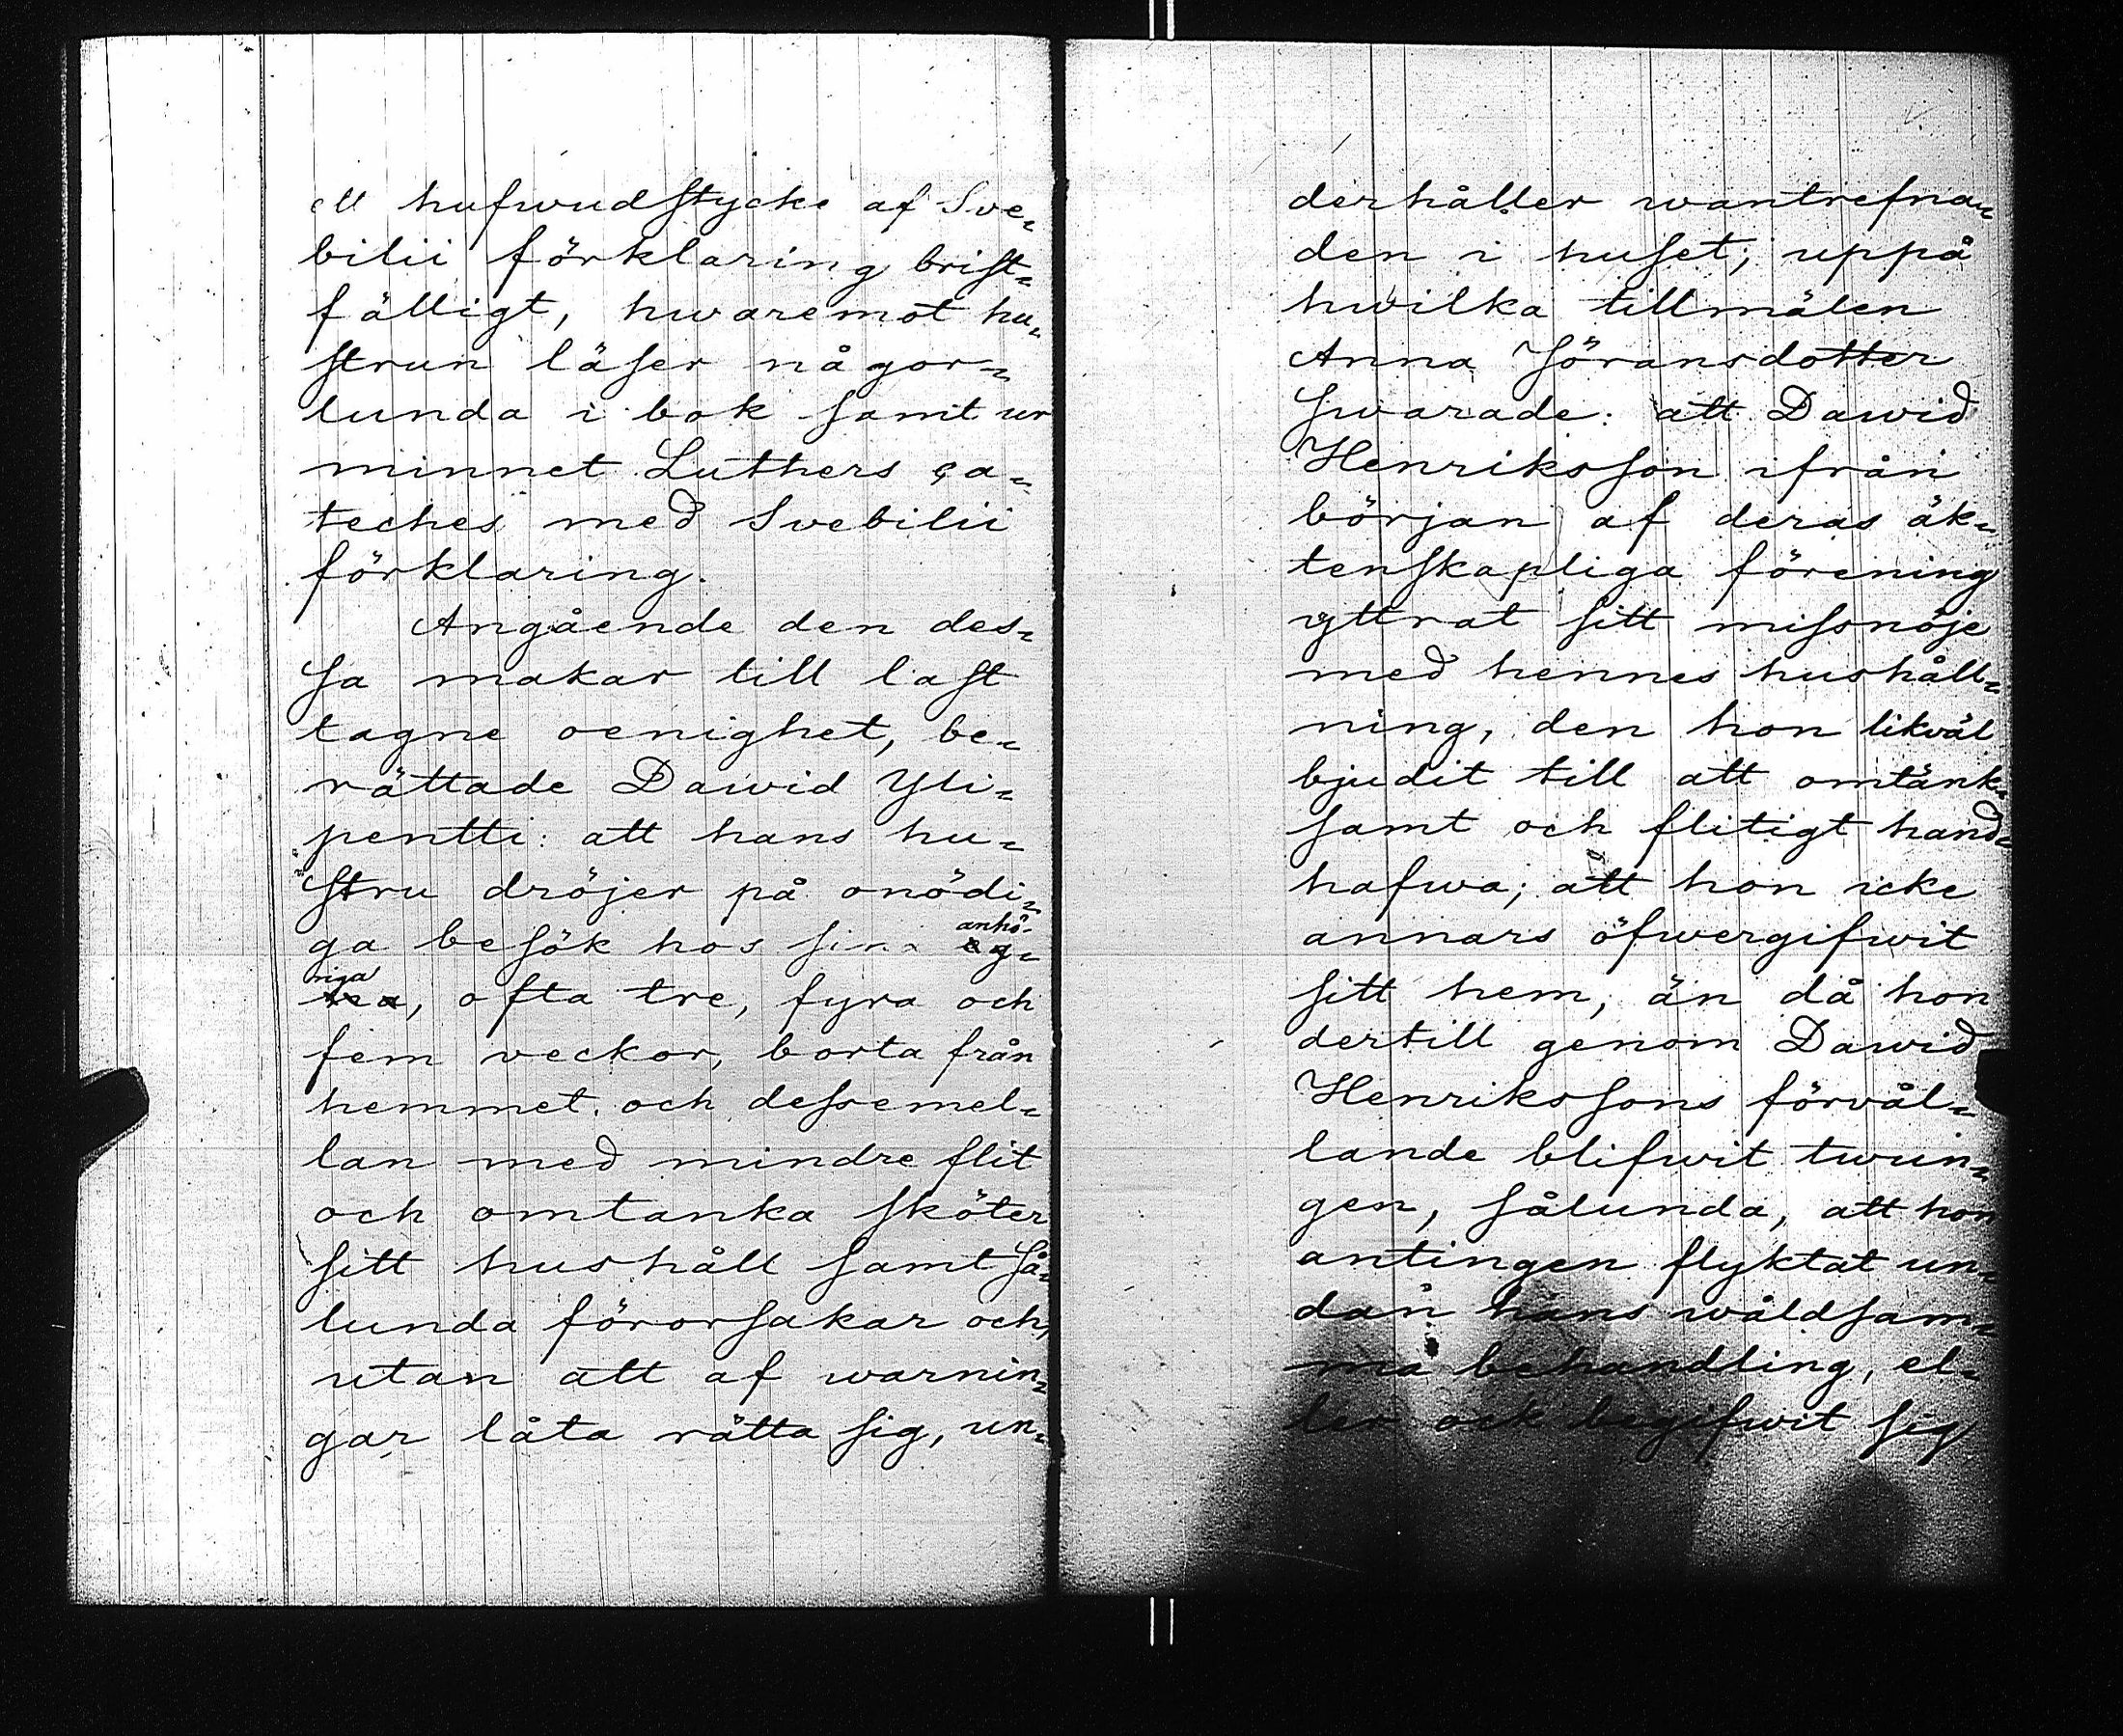 ett hufwudstycke af Sve-
bilii förklaring brist-
fälligt, hwaremot hu-
strun läser någor-
lunda i bok samt ur
minnet Luthers ca-
teches med Svebilii
förklaring.
Angående den des-
sa makar till last
tagne oenighet, be-
rättade Dawid Yli-
pentti: att hans hu-
stru dröjer på onödi-
ga besök hos sina anhö-
riga, ofta tre, fyra och
fem veckor, borta från
hemmet. och dessemel-
lan med mindre flit
och omtanka sköter
sitt hushåll samt så-
lunda förorsakar och,
utan att af warnin-
gar låta rätta sig, un-
derhåller wantrefna-
den i huset; uppå
hwilka tillmälen
Anna Jöransdotter
swarade: att Dawid
Henriksson ifrån
början af deras äk-
tenskapliga förening
yttrat sitt missnöje
med hennes hushåll-
ning, den hon likväl
bjudit till att omtänk-
samt och flitigt hand-
hafwa; att hon icke
annars öfwergifwit
sitt hem, än då hon
dertill genom Dawid
Henrikssons förvål-
lande blifwit twun-
gen, sålunda, att hon
antingen flyktat un-
dan hans wåldsam-
ma behandling, el-
ler ock begifwit sig